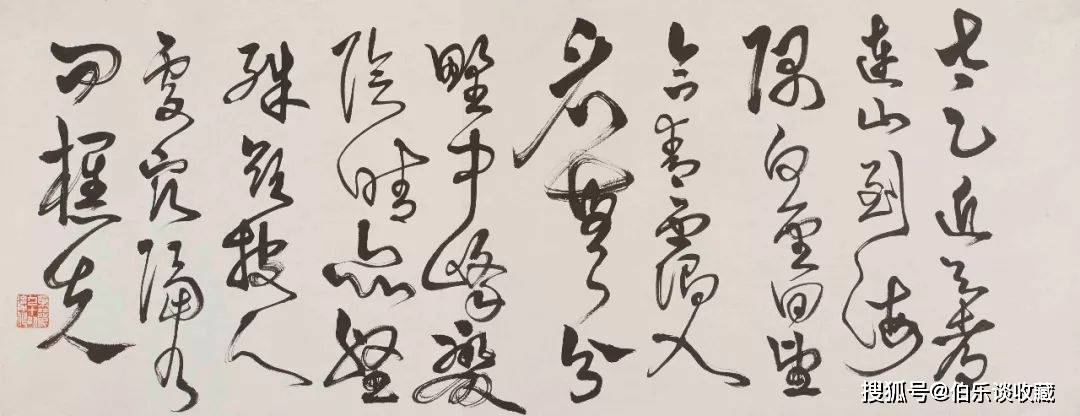 太乙近天都
連山到海
隅白雲回望
合青靄入
看無分
野中峰變
陰晴衆壑
殊欲投人
處宿隔水
問樵夫
搜狐号@伯乐谈收藏